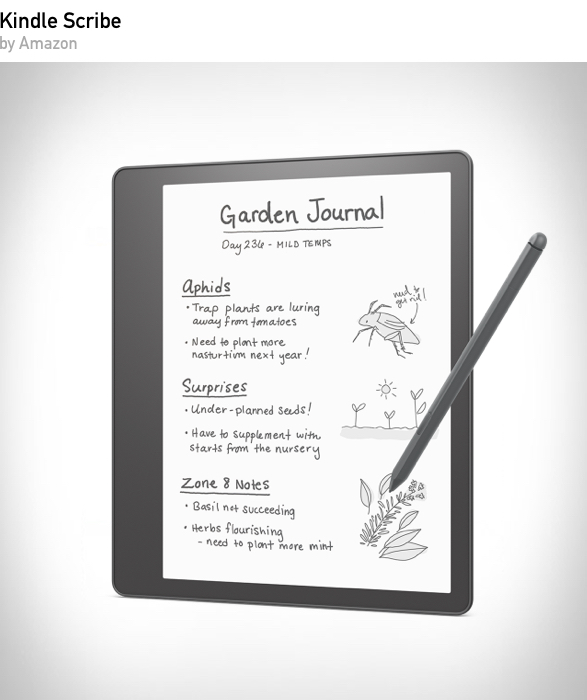 Kindle Scribe
by Amazon
Garden Journal
Day 236 - MILD TEMPS
Aphids
• Trap plants are luring
away from tomatoes
• Need to plant more
nasturtium next year!
need to
get rid!
Surprises
• Under-planned seeds!
• Have to supplement with
starts from the nursery
Zone 8 Notes
• Basil not succeeding
• Herbs flourishing
- need to plant more mint